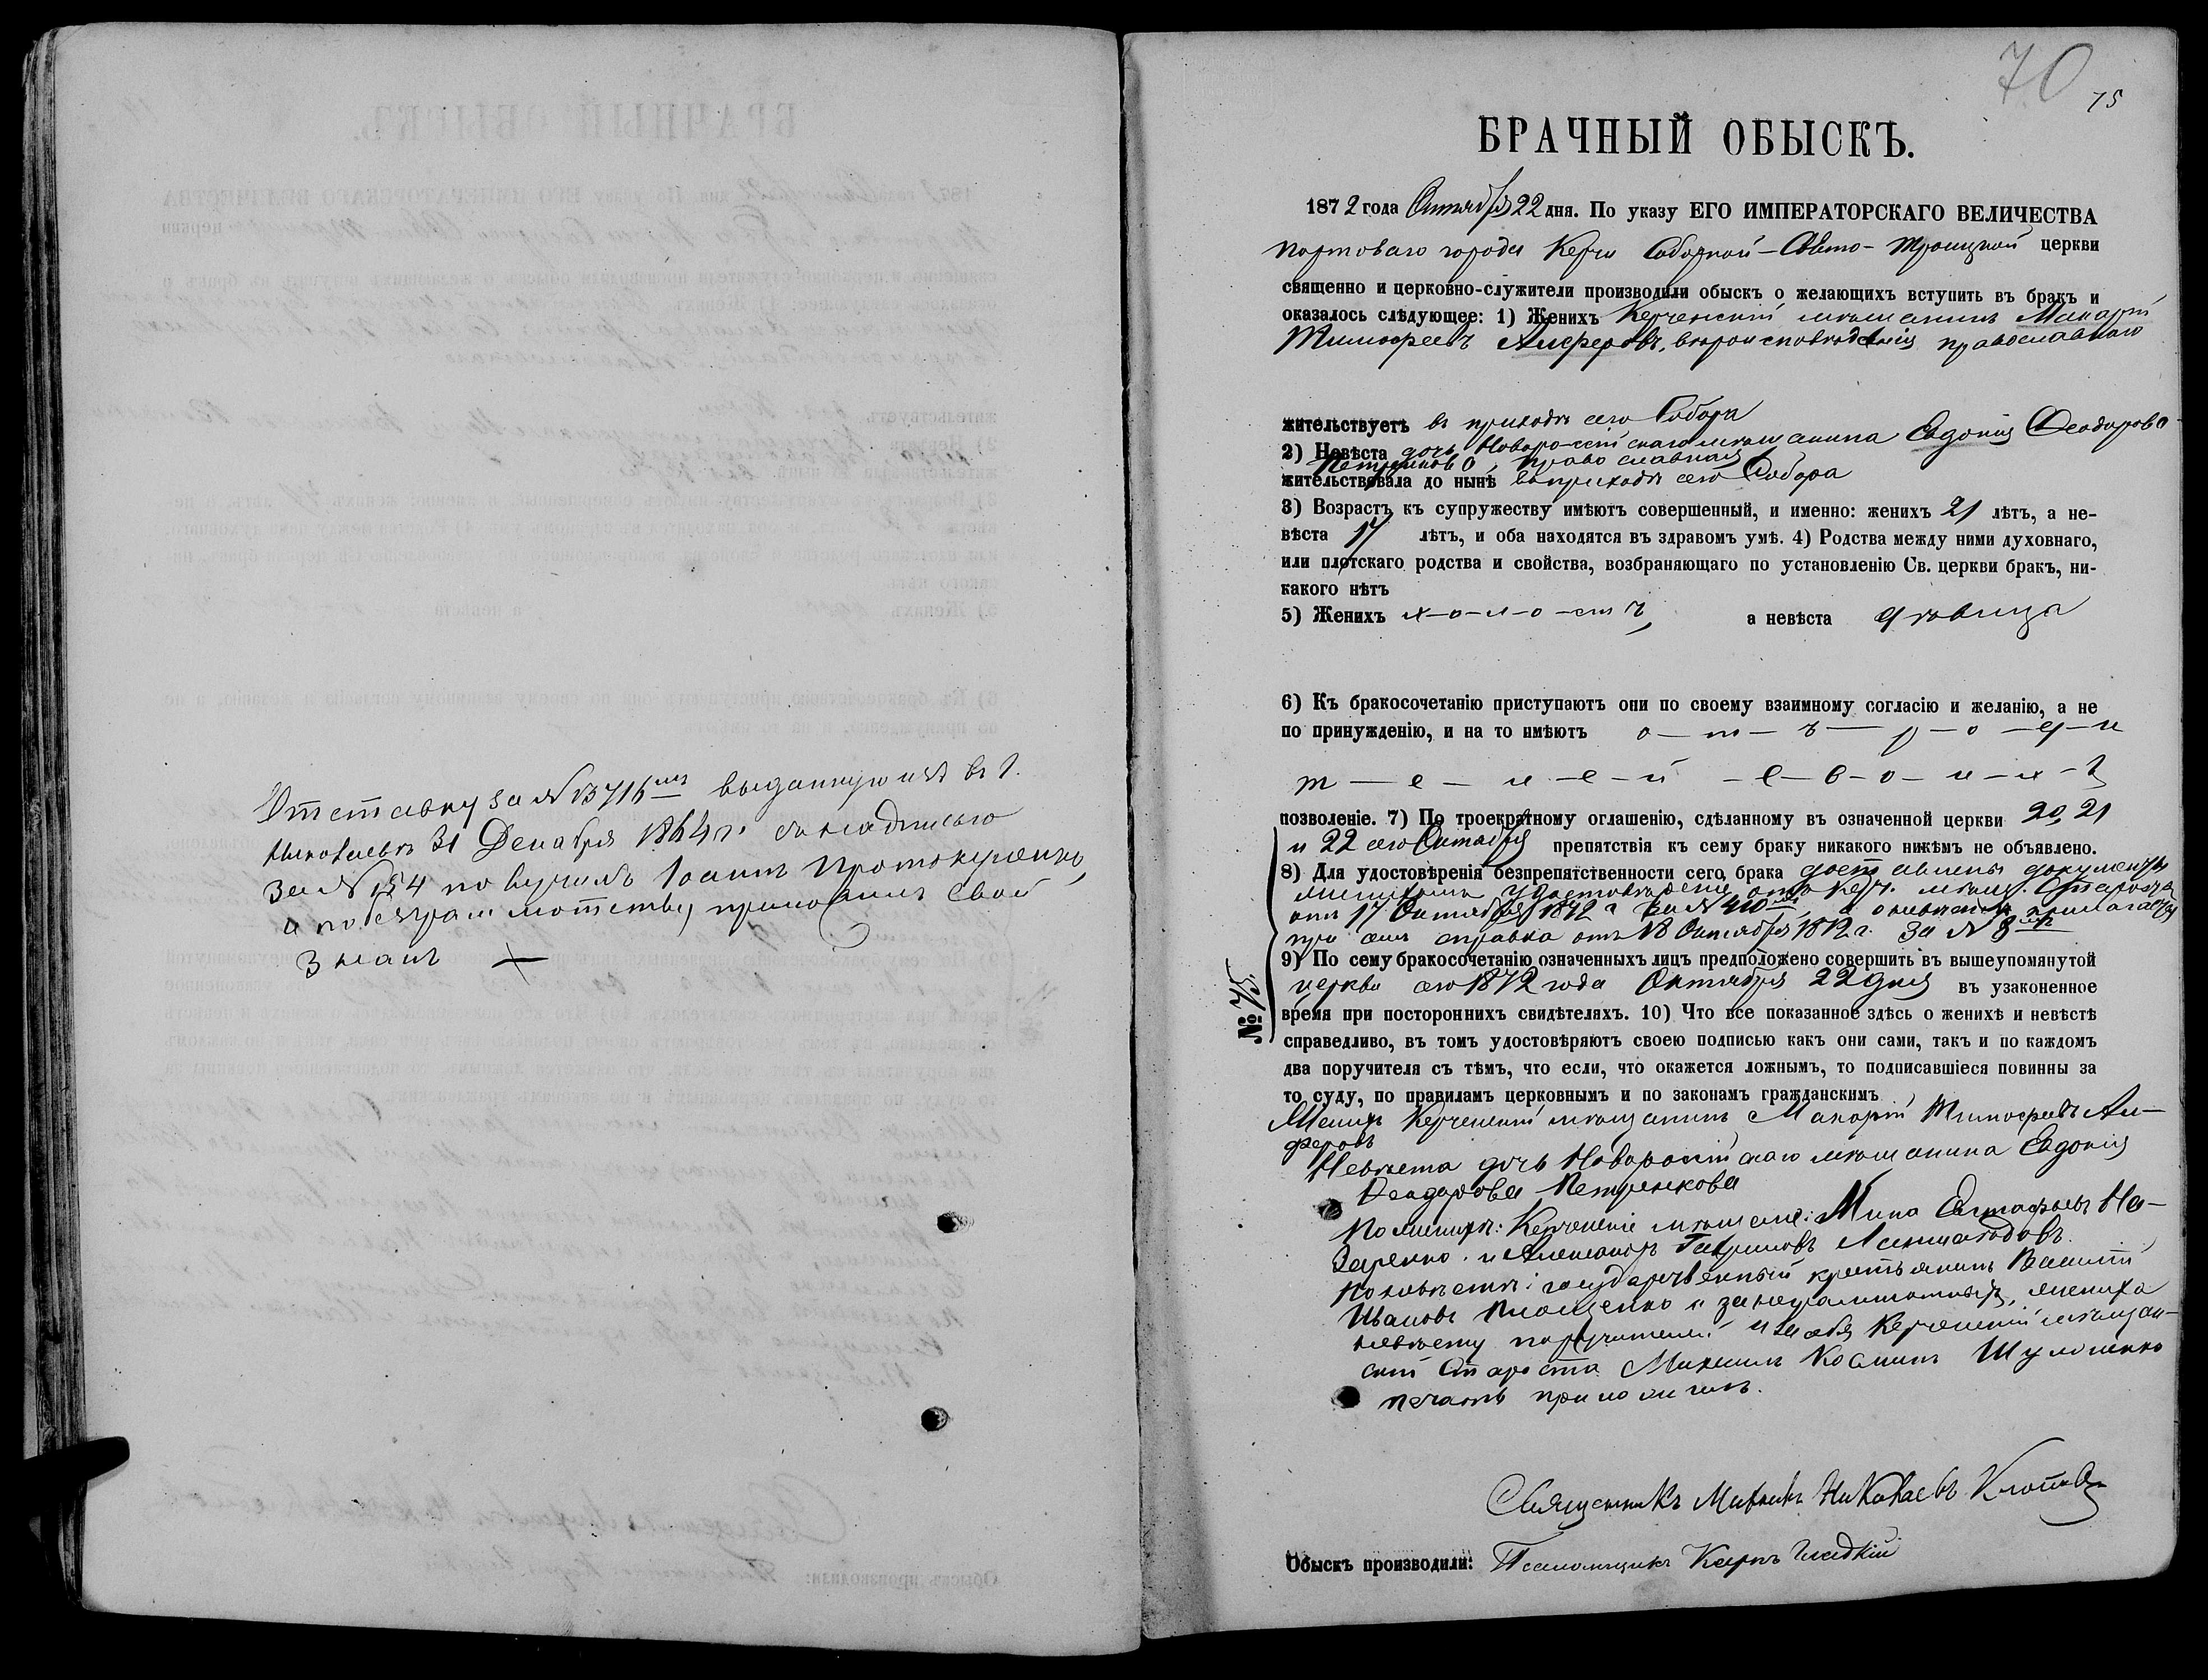 Отставку за № 13716мъ выданную изъ въ г.
Николаевѣ 31 Декабря 1864 г. съ надписью
за № 154 получилъ Іоаннъ
а по безграмотству приложилъ свой
знакъ +
70
75
БРАЧНЫЙ ОБЫСКЪ.
1872 года Октября 22 дня. По указу ЕГО ИМПЕРАТОРСКАГО ВЕЛИЧЕСТВА
портоваго города Керчи Соборной-Свято-Троицкой церкви
священно и церковно-служители производили обыскъ о желающихъ вступить въ бракъ и
оказалось слѣдующее: 1) Женихъ Керченскій мѣщанинъ Макарій
Тимофеевъ Алферовъ, вѣроисповѣданія православнаго
жительствуетъ въ приходѣ сего Собора
2) Невѣста дочь Новороссійскаго мѣщанина Евдокія Ѳеодорова
Петренкова, православная
жительствовала до нынѣ въ приходѣ сего Собора
3) Возрастъ къ супружеству имѣютъ совершенный, и именно: женихъ 21 лѣтъ, а не-
вѣста 17 лѣтъ, и оба находятся въ здравомъ умѣ. 4) Родства между ними духовнаго,
или плотскаго родства и свойства, возбраняющаго по установленію Св. церкви бракъ, ни-
какого нѣтъ
5) Женихъ х-о-л-о-стъ, а невѣста дѣвица
6) Къ бракосочетанію приступаютъ они по своему взаимному согласію и желанію, а не
по принужденію, и на то имѣютъ о-т-ъ-р-о-д-и
т-е-л-е-й-с-в-о-и-х-ъ
позволеніе. 7) По троекратному оглашенію, сдѣланному въ означенной церкви 20, 21
и 22 сего Октября препятствія къ сему браку никакого никѣмъ не объявлено.
8) Для удостовѣренія безпрепятственности сего брака доставлены документы
женихомъ удостовѣреніе отъ Керч. мѣщ. Старосты
отъ 17 Октября 1872 г за № 410мъ, а о невѣстѣ прилагается
при семъ справка отъ 18 Октября 1872 г. за № 8мъ
9) По сему бракосочетанію означенныхъ лицъ предположено совершить въ вышеупомянутой
церкви сего 1872 года Октября 22 дня въ узаконенное
время при постороннихъ свидѣтеляхъ. 10) Что все показанное здѣсь о женихѣ и невѣстѣ
справедливо, въ томъ удостовѣряютъ своею подписью какъ они сами, такъ и по каждомъ
два поручителя съ тѣмъ, что если, что окажется ложнымъ, то подписавшіеся повинны за
то суду, по правиламъ церковнымъ и по законамъ гражданскимъ
Женихъ Керченскій мѣщанинъ Макарій Тимофеевъ Ал-
феровъ
Невѣста дочь Новороссійскаго мѣщанина Евдокія
Ѳеодорова Петренкова
По женихѣ: Керченскіе мѣщане: Мина Евстафьевъ На-
заренко и Александръ Гавриловъ
По невѣстѣ: государственный крестьянинъ Василій
Ивановъ и за неграмотныхъ, жениха
невѣсту поручителей и за себя Керченскій мѣщан-
скій Староста Михаилъ Косминъ
печать приложилъ.
Священникъ Михаилъ Николаевъ
Обыскъ производили: Псаломщикъ Карпъ Гладкій